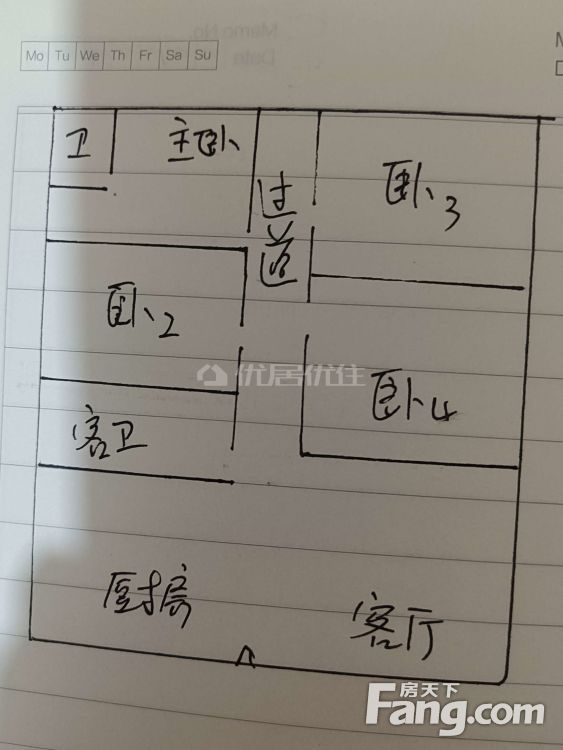 Memo No.
Date
Mo Tu We Th Fr Sa Su
M
D
卫
主卧
过道
卧3
卧2
优居优住
卧4
客卫
厨房
客厅
房天下
Fang.com